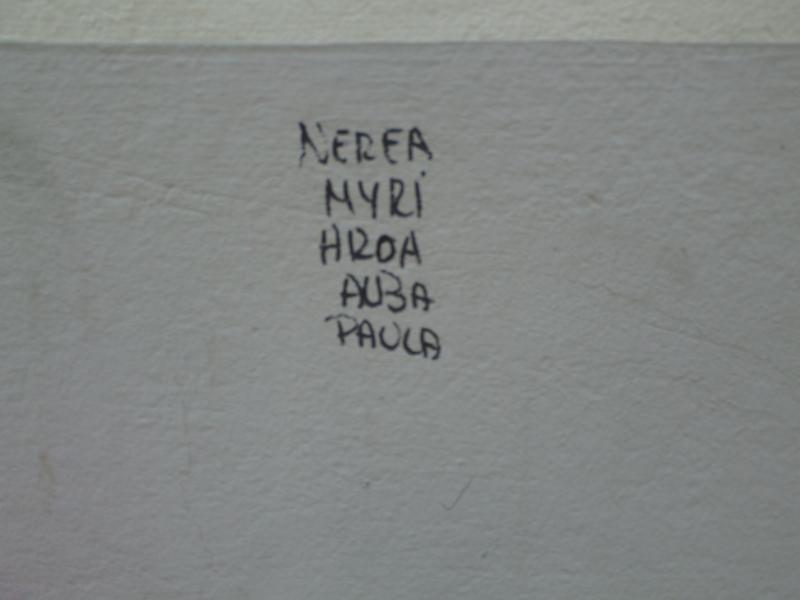 NEREA
MYRi
AROA
AUBA
PAULA